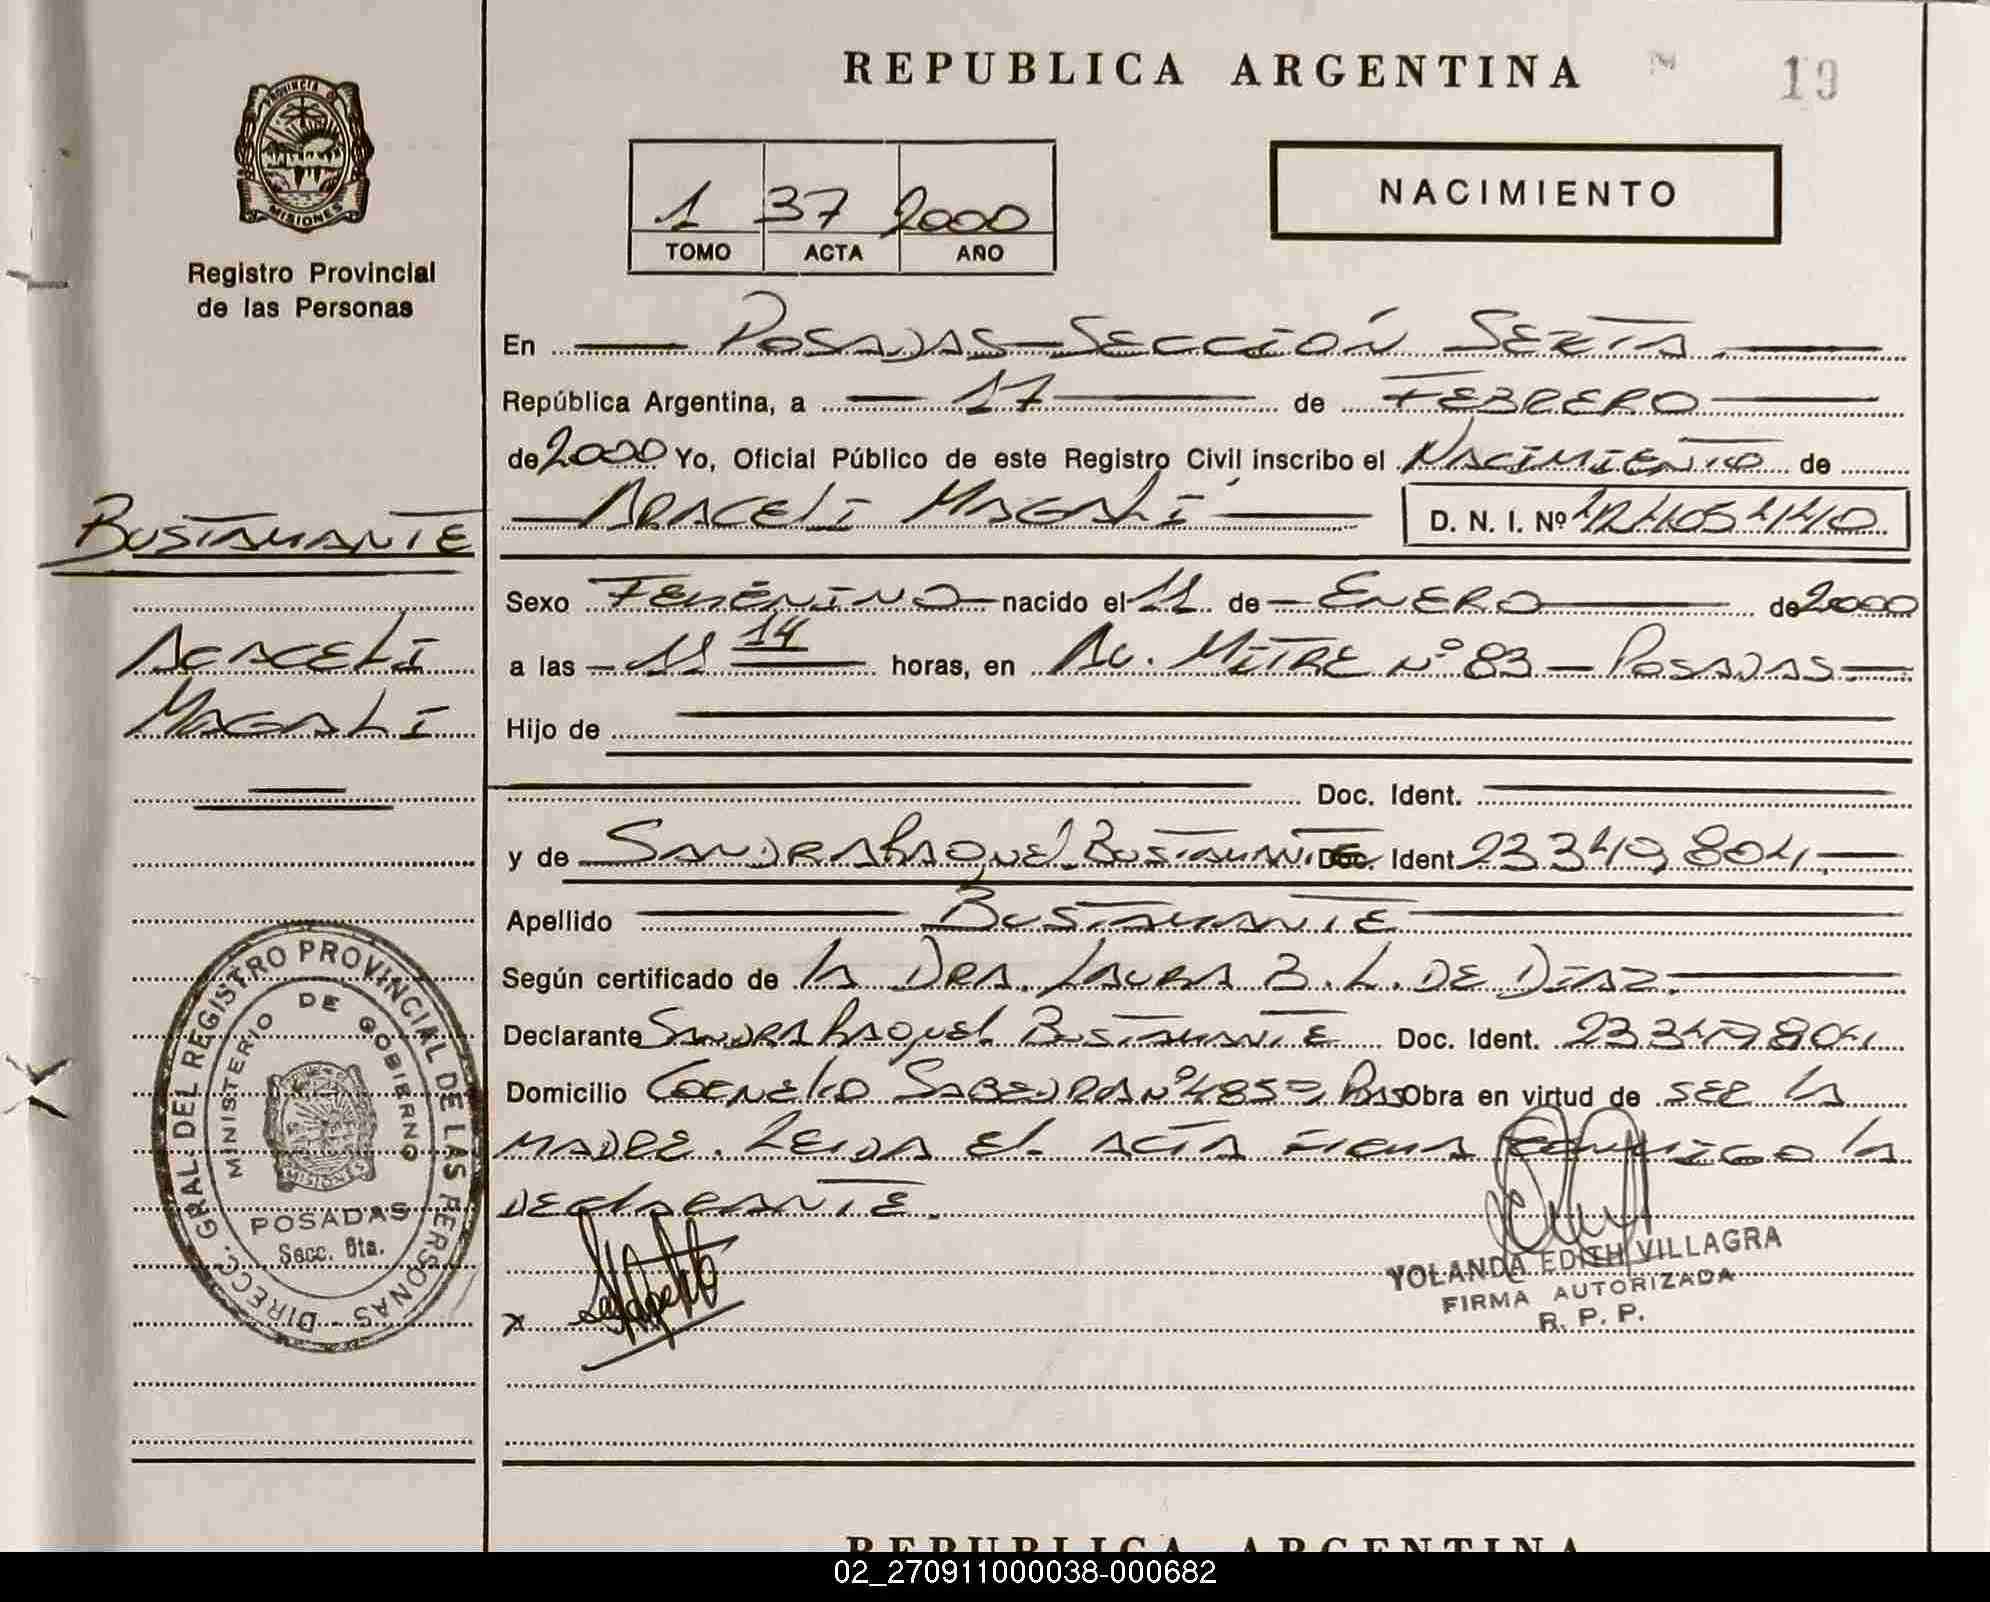 REPUBLICA ARGENTINA
19
PROVINCIA D
MISIONES
Registro Provincial
de las Personas
1 37 2000
TOMO ACTA AÑO
NACIMIENTO
En POSADAS-SECCIÓN SEXTA.
República Argentina, a 17 de FEBRERO
de 2000 Yo, Oficial Público de este Registro Civil inscribo el NACIMIENTO de
ARACELI MAGALÍ D. N. I. Nº 42.405.440
BUSTAMANTE
ARACELI
MAGALI
Sexo FEMENINO nacido el 11 de ENERO de 2000
a las 11 14 horas, en AV. MITRE Nº 83 - POSADAS
Hijo de
Doc. Ident.
y de SANDRA RAQUEL BUSTAMANTE Doc. Ident 23.349.804
Apellido BUSTAMANTE
Según certificado de LA DRA. LAURA B. L. DE DIAZ.
Declarante SANDRA RAQUEL BUSTAMANTE Doc. Ident. 23.349.804
Domicilio CORNELIO SAAVEDRA Nº Obra en virtud de SER LA
MADRE. LEIDA EL ACTA FIRMA CONMIGO LA
DECLARANTE.
x
YOLANDA EDITH VILLAGRA
FIRMA AUTORIZADA
R. P. P.
DIRECC. GRAL. DEL REGISTRO PROVINCIAL DE LAS PERSONAS
MINISTERIO DE GOBIERNO
POSADAS
Secc. 6ta.
REPUBLICA ARGENTINA
02_270911000038-000682